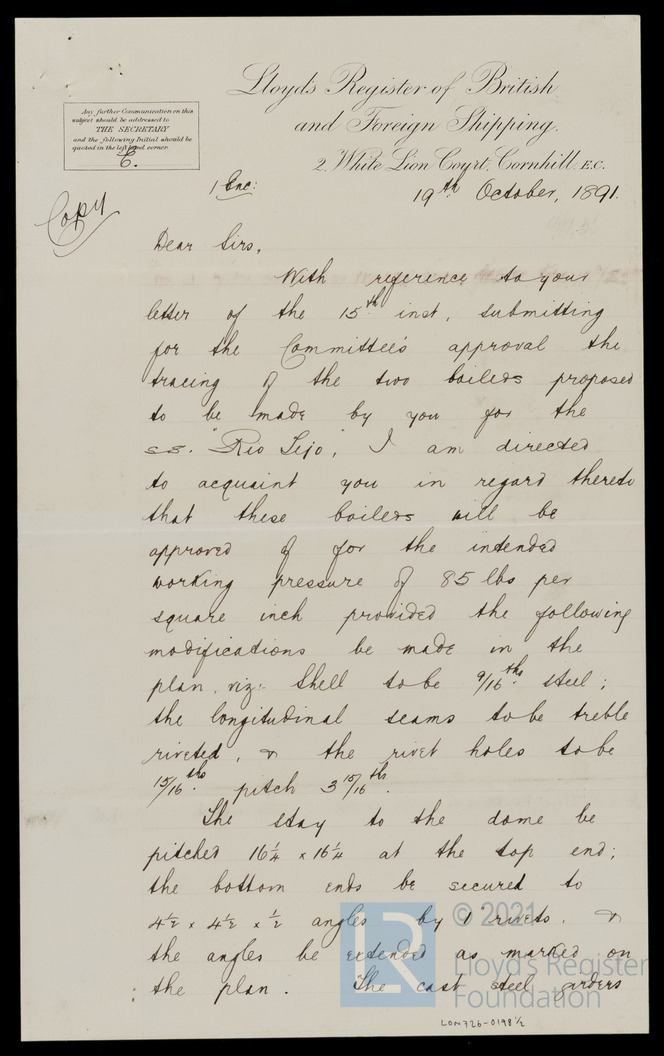 Lloyd's Register of British
and Foreign Shipping.
2, White Lion Court, Cornhill, E.C.
Any further Communication on this
subject should be addressed to
THE SECRETARY
and the following Initial should be
quoted in the left hand corner.
E.
1 Enc:
19th October, 1891.
Copy
Dear Sirs,
With reference to your
letter of the 15th inst, submitting
for the Committee's approval the
tracing of the two boilers proposed
to be made by you for the
s.s. "Rio Tejo", I am directed
to acquaint you in regard thereto
that these boilers will be
approved of for the intended
working pressure of 85 lbs per
square inch provided the following
modifications be made in the
plan, viz:- Shell to be 9/16ths steel;
the longitudinal seams to be treble
riveted, & the rivet holes to be
15/16ths pitch 3 15/16th.
The stay to the dome be
pitched 16¼ x 16¼ at the top end;
the bottom ends be secured to
4½ x 4½ x ½ angles by 1" rivets. &
the angles be extended as marked on
the plan. The cast steel girders
© 2021
LR
Lloyd's Register
Foundation
LON726-0198½